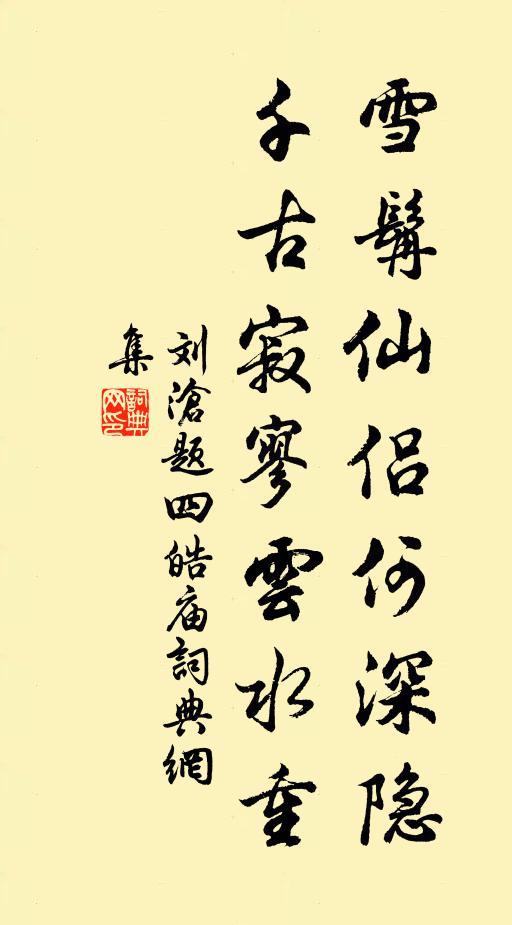 雪髯仙侣何深隐
千古寂寥雲水重
刘滄题四皓庙詞典網
集
詞典
网印